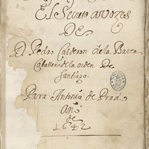 El Secreto a Vozes
DE
D. Pedro Calderon de la Barca
Cauallero de la orden De
Santiago
Para Antonio de Prado
Año
DE
1642